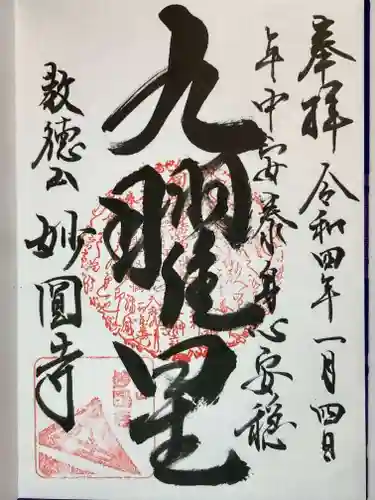 奉拝 令和四年一月四日
年中安泰身心安穏
九曜星
教徳山 妙圓寺